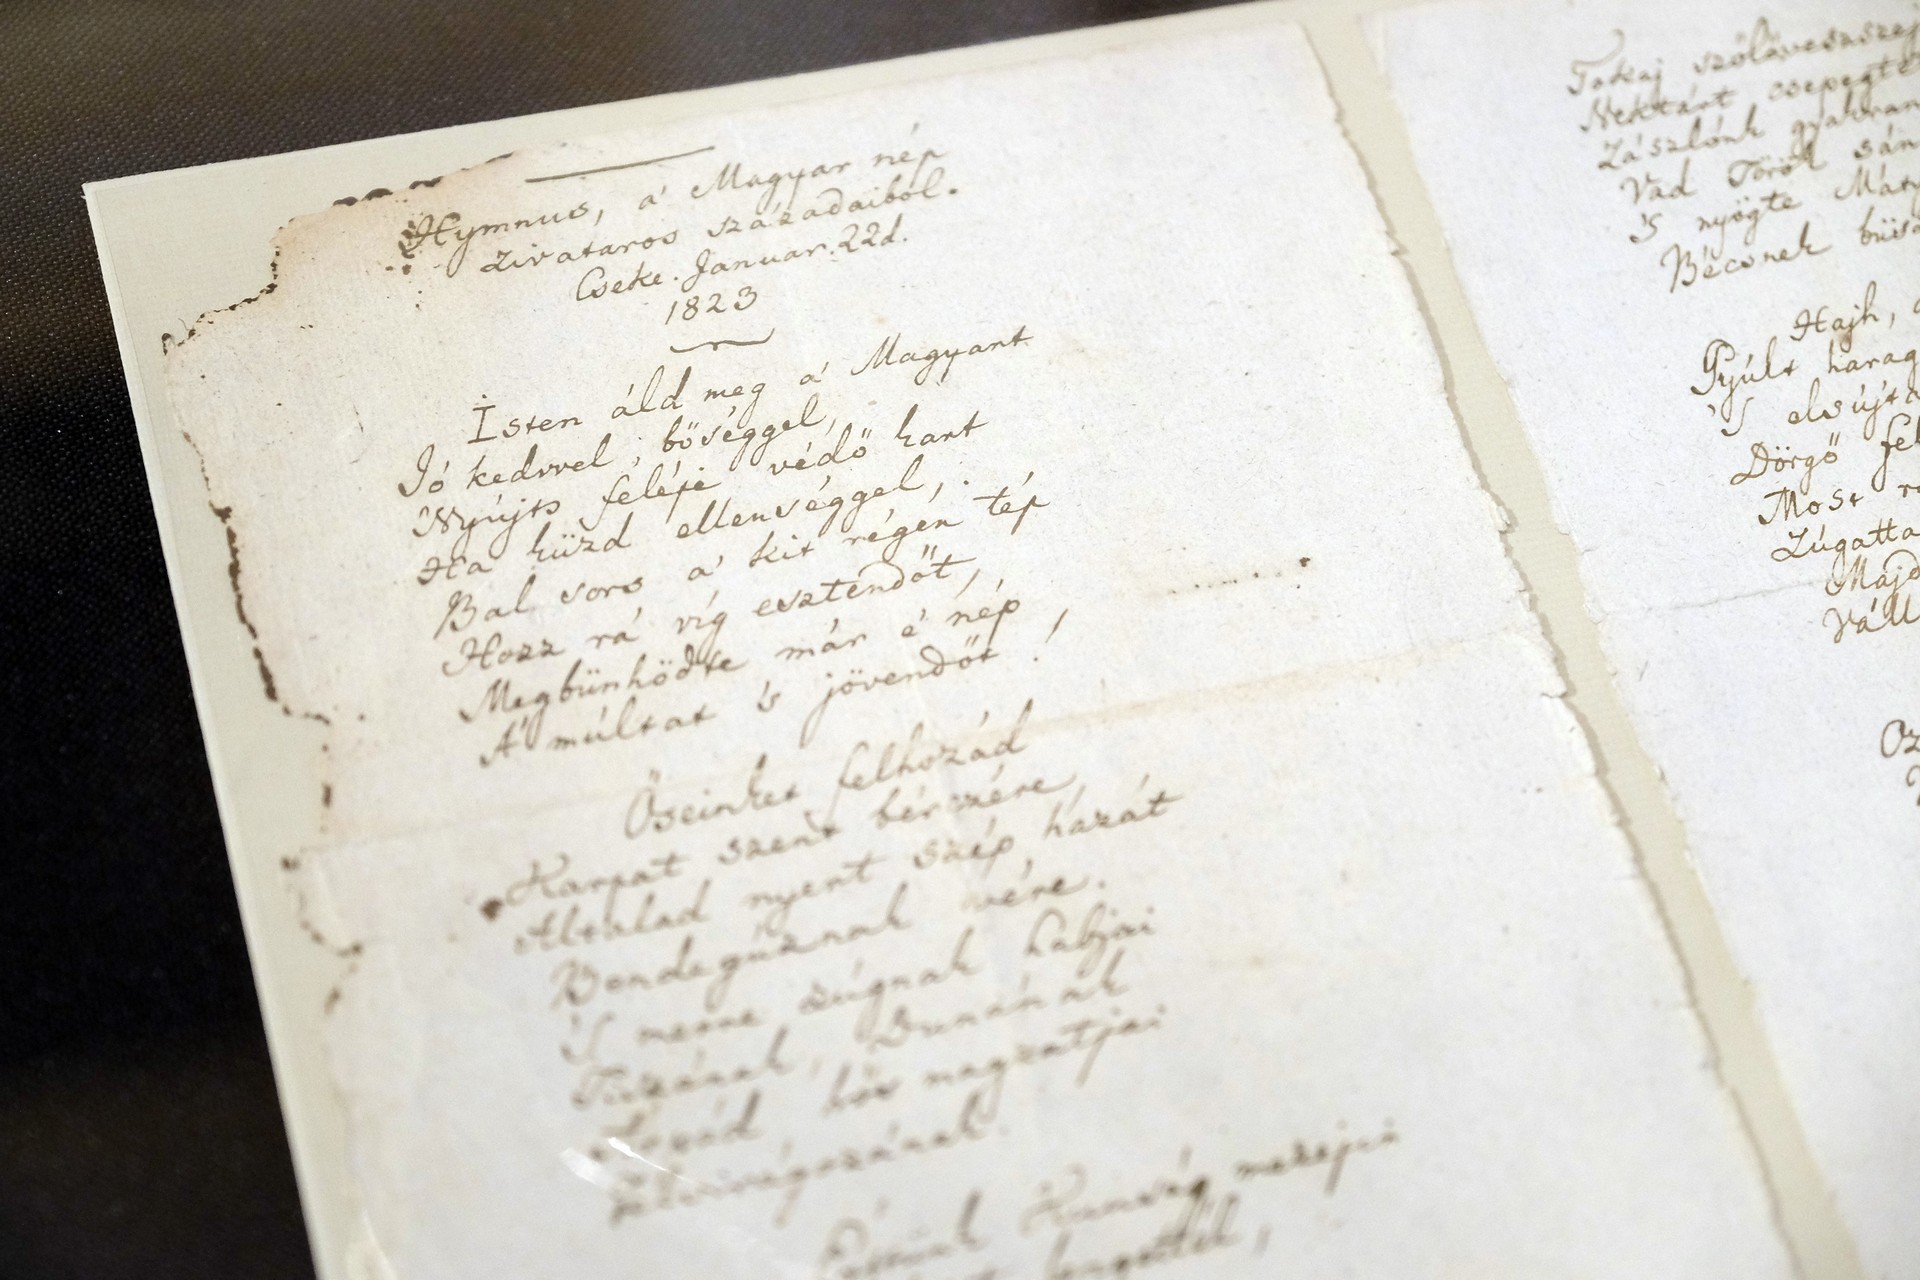 Hymnus, a' Magyar nép
zivataros századaiból.
Cseke. Januar. 22d.
1823
Isten áld meg a' Magyart
Jó kedvvel, bőséggel,
Nyújts feléje védő kart
Ha küzd ellenséggel,
Bal sors a' kit régen tép
Hozz rá víg esztendőt,
Megbűnhődte már e' nép
A' múltat 's jövendőt!
Őseinket felhozád
Kárpát szent bérczére,
Általad nyert szép hazát
Bendegúznak vére.
'S merre zúgnak habjai
Tiszának, Dunának
Árpád hős magzatjai
Felvirágozának.
Értünk Kunság mezejin
lengettél,
Tokaj szőlővesszej
Nektárt csepegte
Zászlónk gyakran
Vad Török sán
'S nyögte Máty
Bécsnek büs
Hajh,
Gyúlt harag
'S elsújta
Dörgő fel
Most
Zúgatta
Majd
Váll